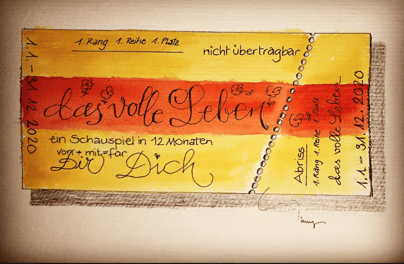 1.1.-31.12.2020
1. Rang 1. Reihe 1. Platz
nicht übertragbar
das volle Leben
ein Schauspiel in 12 Monaten
von + mit = für
Dir Dich
Abriss
1. Rang 1. Reihe 1. Platz
das volle Leben
1.1.-31.12.2020